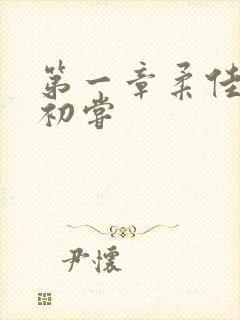 第一章柔佳
初尝
尹懷